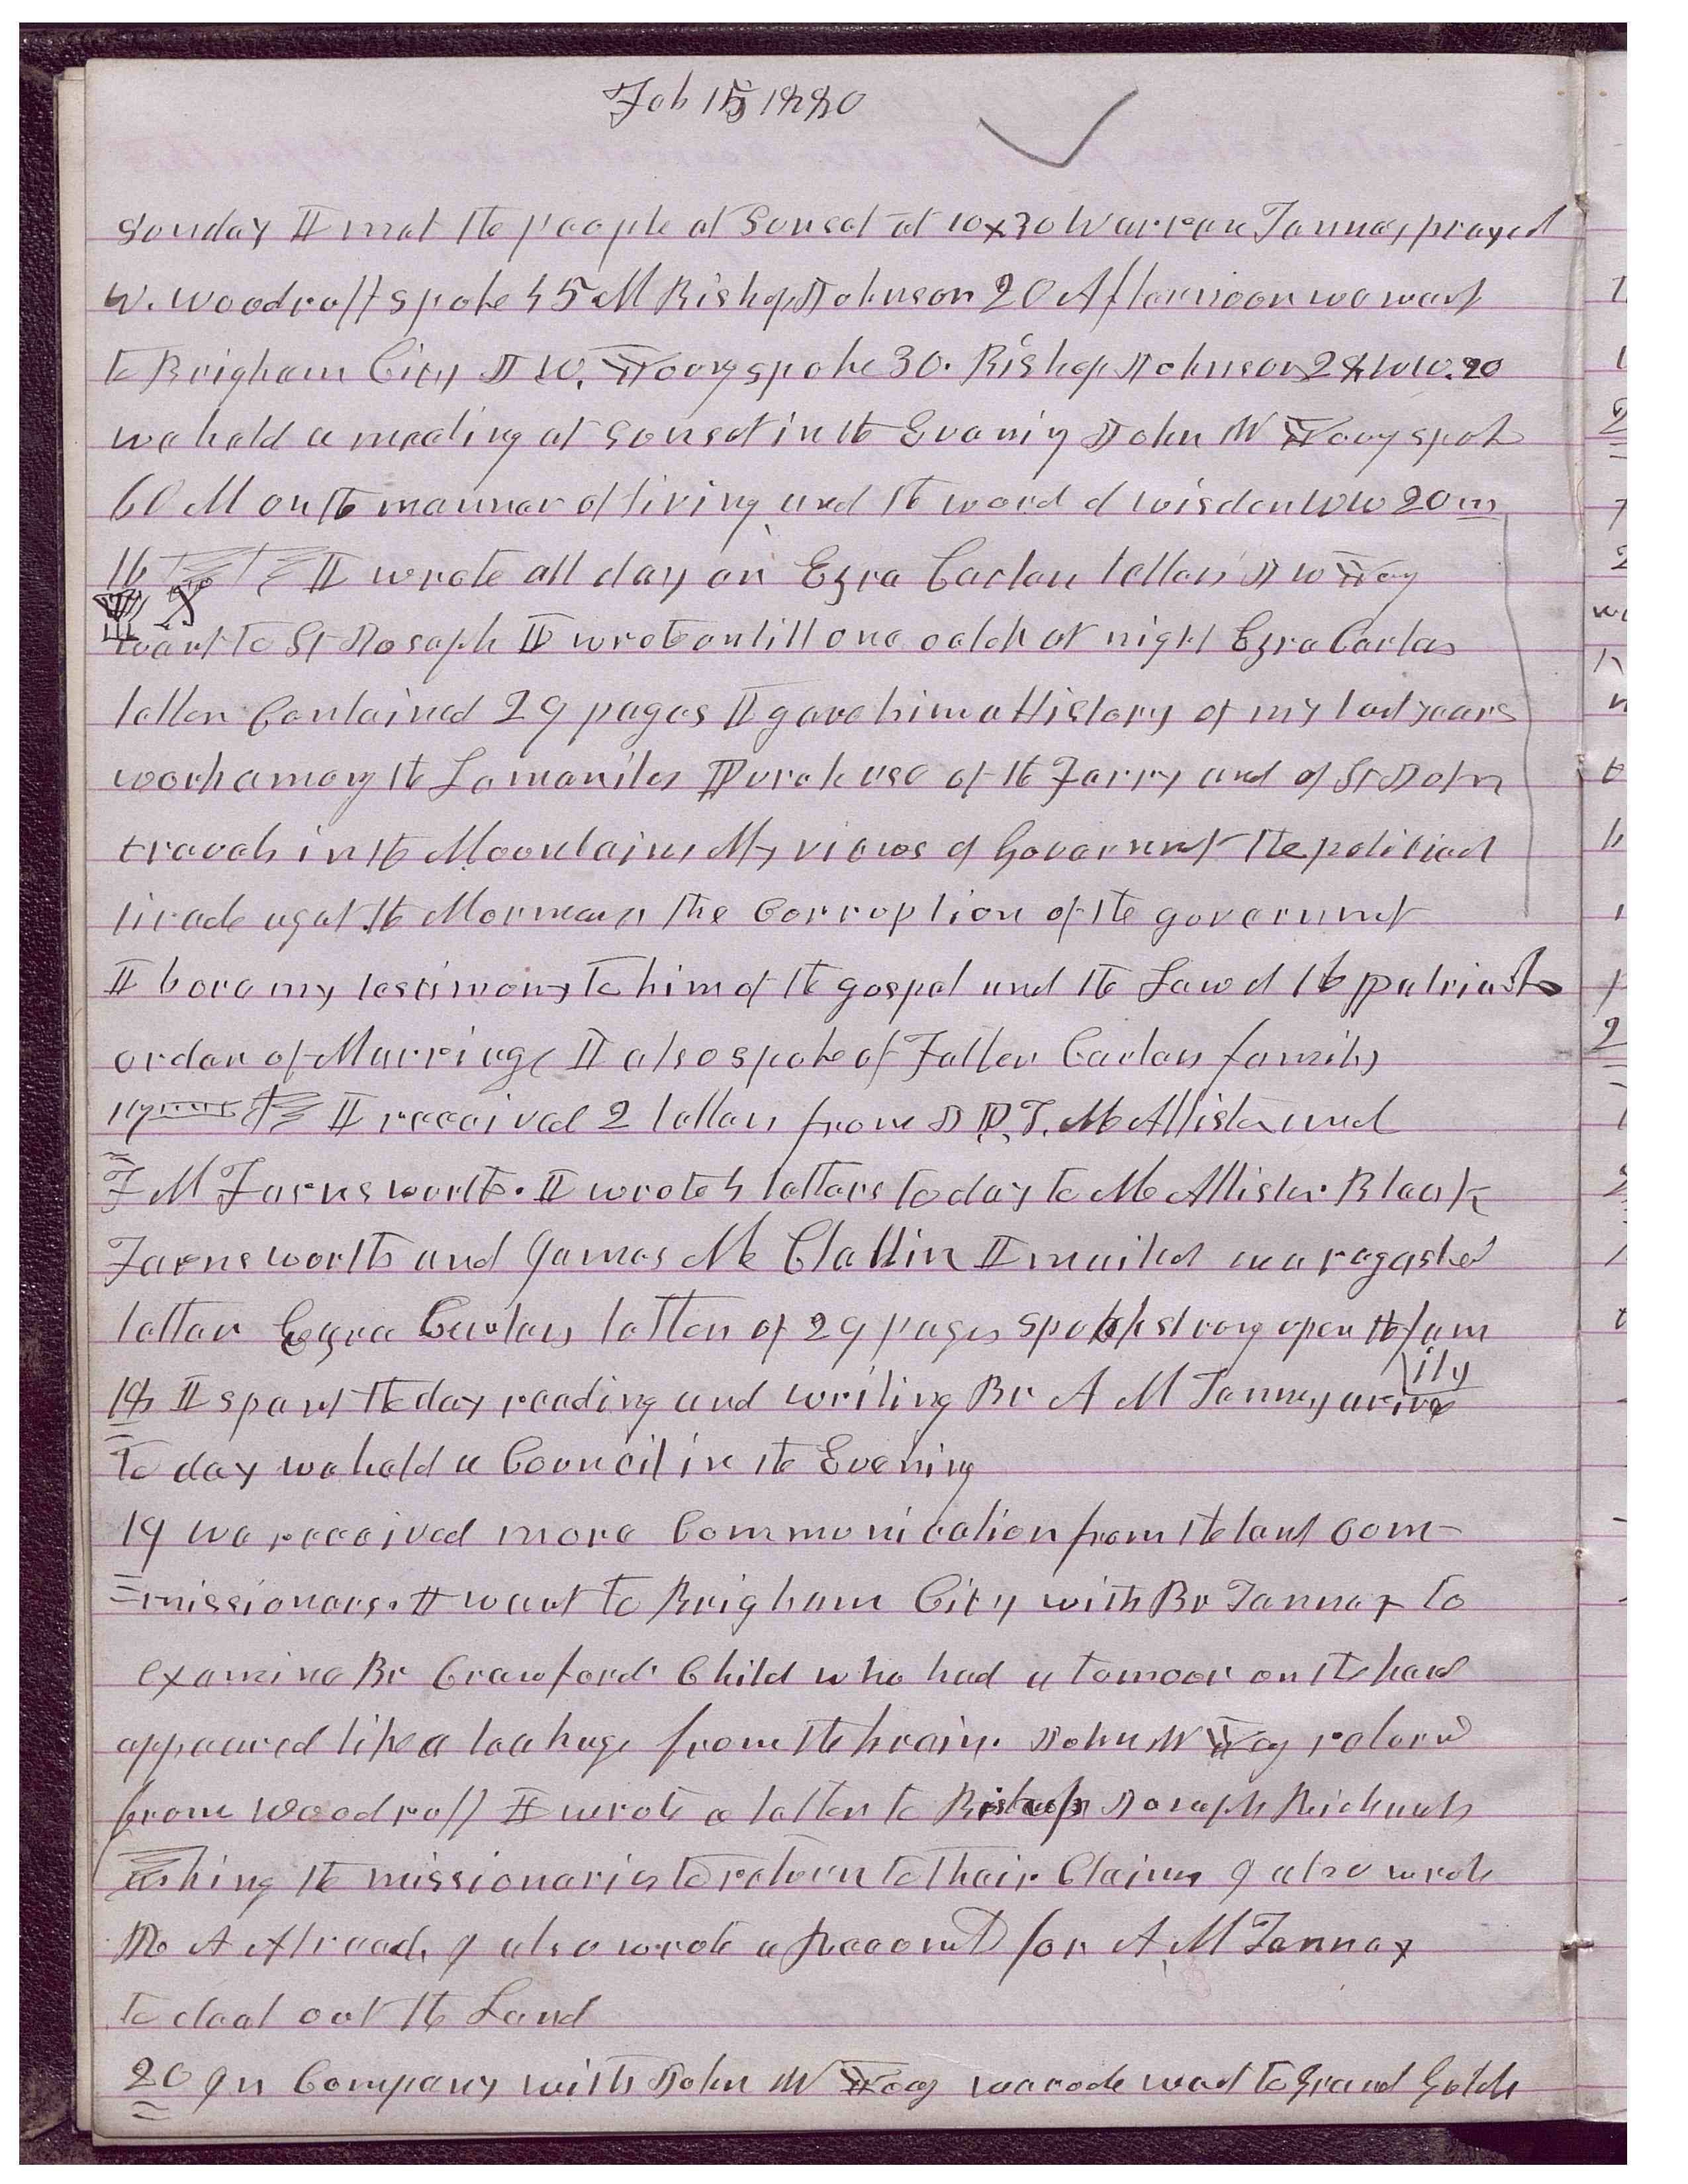 Feb 15 1880
Sunday I met the people at Sunset at 10x30 Warren Tanney prayed
W. Woodruff spoke 45 M Bishop Johnson 20 Afternoon we went
to Brigham City J W. Young spoke 30. Bishop Johnson 28 WW. 20
we held a meeting at Sunset in the Evening John W Young spok
60 M on the manner of living and the word of wisdom WW 20 m
16 I wrote all day on Ezra Carter letters J W Young
went to St Joseph I wrote untill one oclok at night Ezra Carters
letter Contained 29 pages I gave him a History of my last years
work among the Lamanites Purchase of the Farry and of St John
travels in the Mountains My views of Government the political
tirade agst the Mormans the Corruption of the governmt
I bore my testimony to him of the gospel and the Law of the patriarchs
order of Marriage I also spoke of Father Carters family
17 I received 2 letters from J D. T. McAllister and
F M Farnsworth. I wrote 4 letters to day to McAllister Black
Farnsworth and James Mc Clallin I mailed in a regested
letter Ezra Carters letter of 29 pages spoke strong upon the fam
ily
18 I spent the day reading and writing Br A M Tanney arive
to day we held a Council in the Evening
19 we received more Communication from the land com-
missioners. I went to Brigham City with Br Tanney to
examine Br Crawford Child who had a tumoor on the head
appeared like a leakage from the brain. John W Young returnd
from Woodruff I wrote a letter to Bishop Joseph Richards
asking the missionaries to return to thair Claims I also wrote
A I also wrote a for A. M Tanney
to deal out the Land
20 In Company with John W Young we rode west to Grand